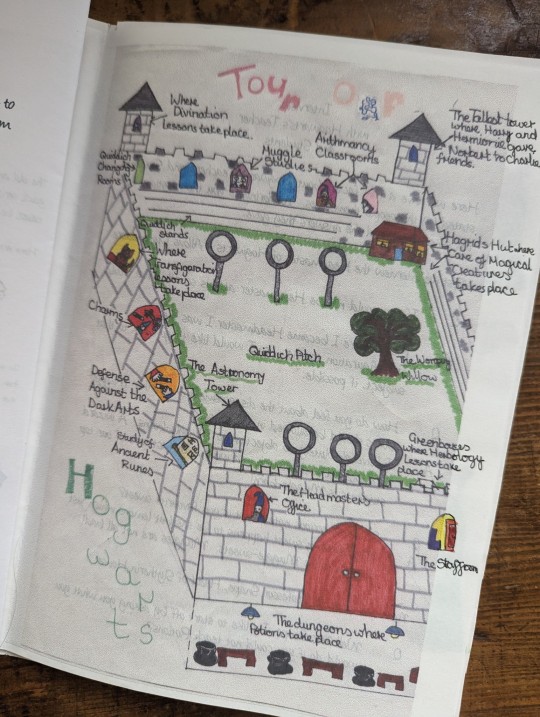 to
m
Tour Our
Where
Divination
Lessons take place..
The Tallest tower
where Harry and
Hermione gave
Norbert to Charlie's
friends.
Quidditch
Changing
Rooms
Muggle
Studies
Arithmancy
Classrooms
Quidditch
stands
Where
Transfiguration
lessons
take place
Hagrid's Hut where
Care of Magical
Creatures
takes place
Charms
Quidditch Pitch
The Womping
Willow
Defense
Against the
Dark Arts
The Astronomy
Tower
Study of
Ancient
Runes
Greenhouses
where Herbology
Lessons take
place
The Headmasters
Office
The Staffroom
Hogwarts
The dungeons where
Potions take place